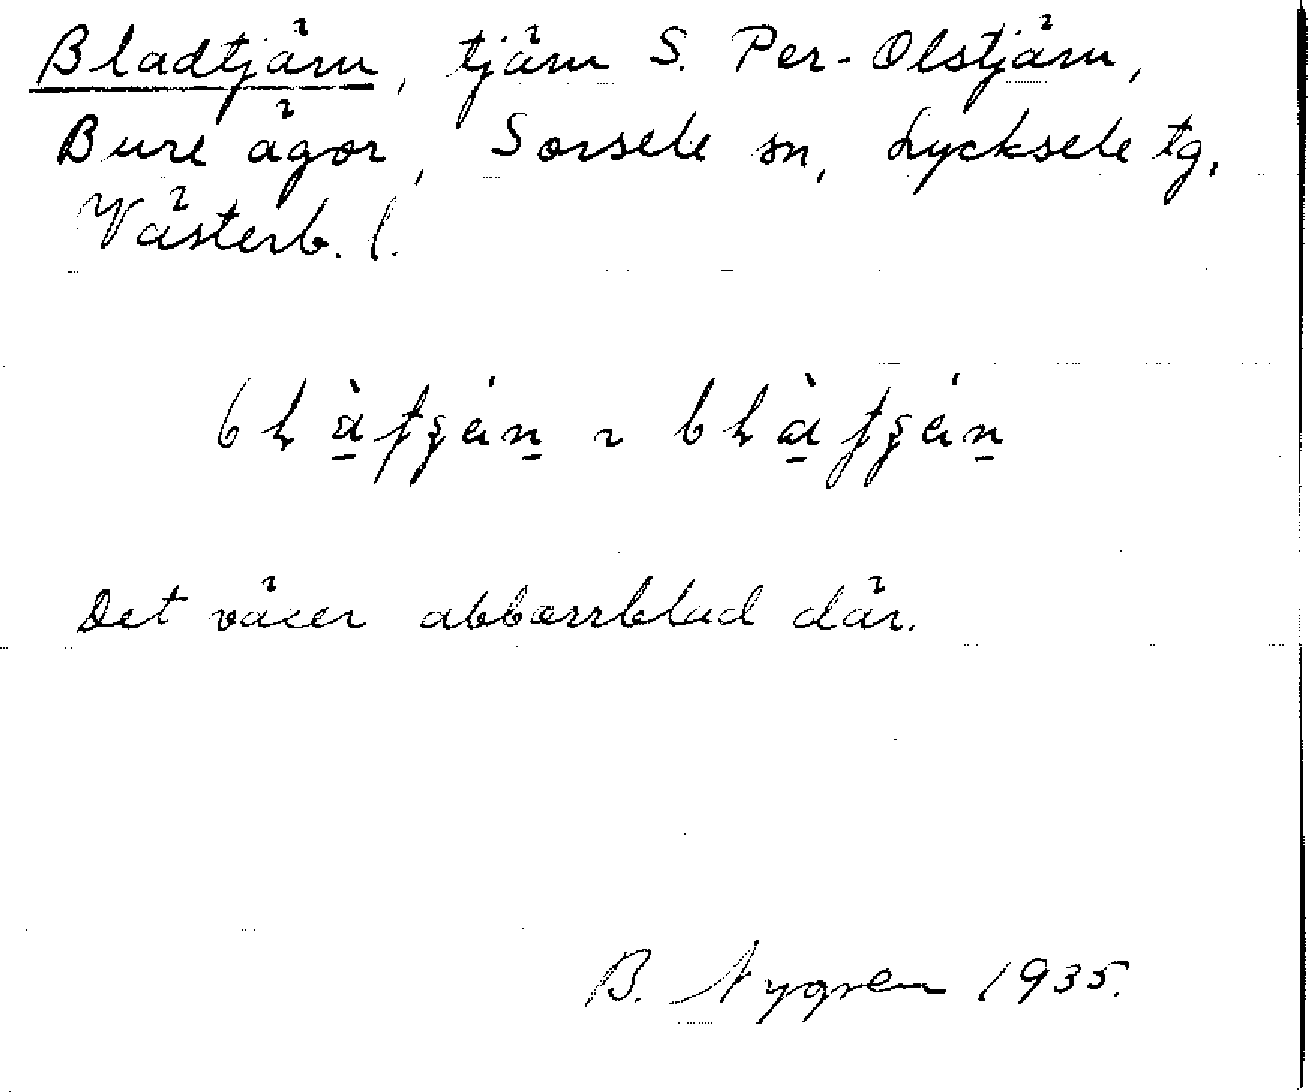 Bladtjärn, tjärn S. Per-Olstjärn,
Bure ägor, Sorsele sn, Lycksele tg,
Västerb. l.
Det väser abborrblad där.
B. Nygren 1935.